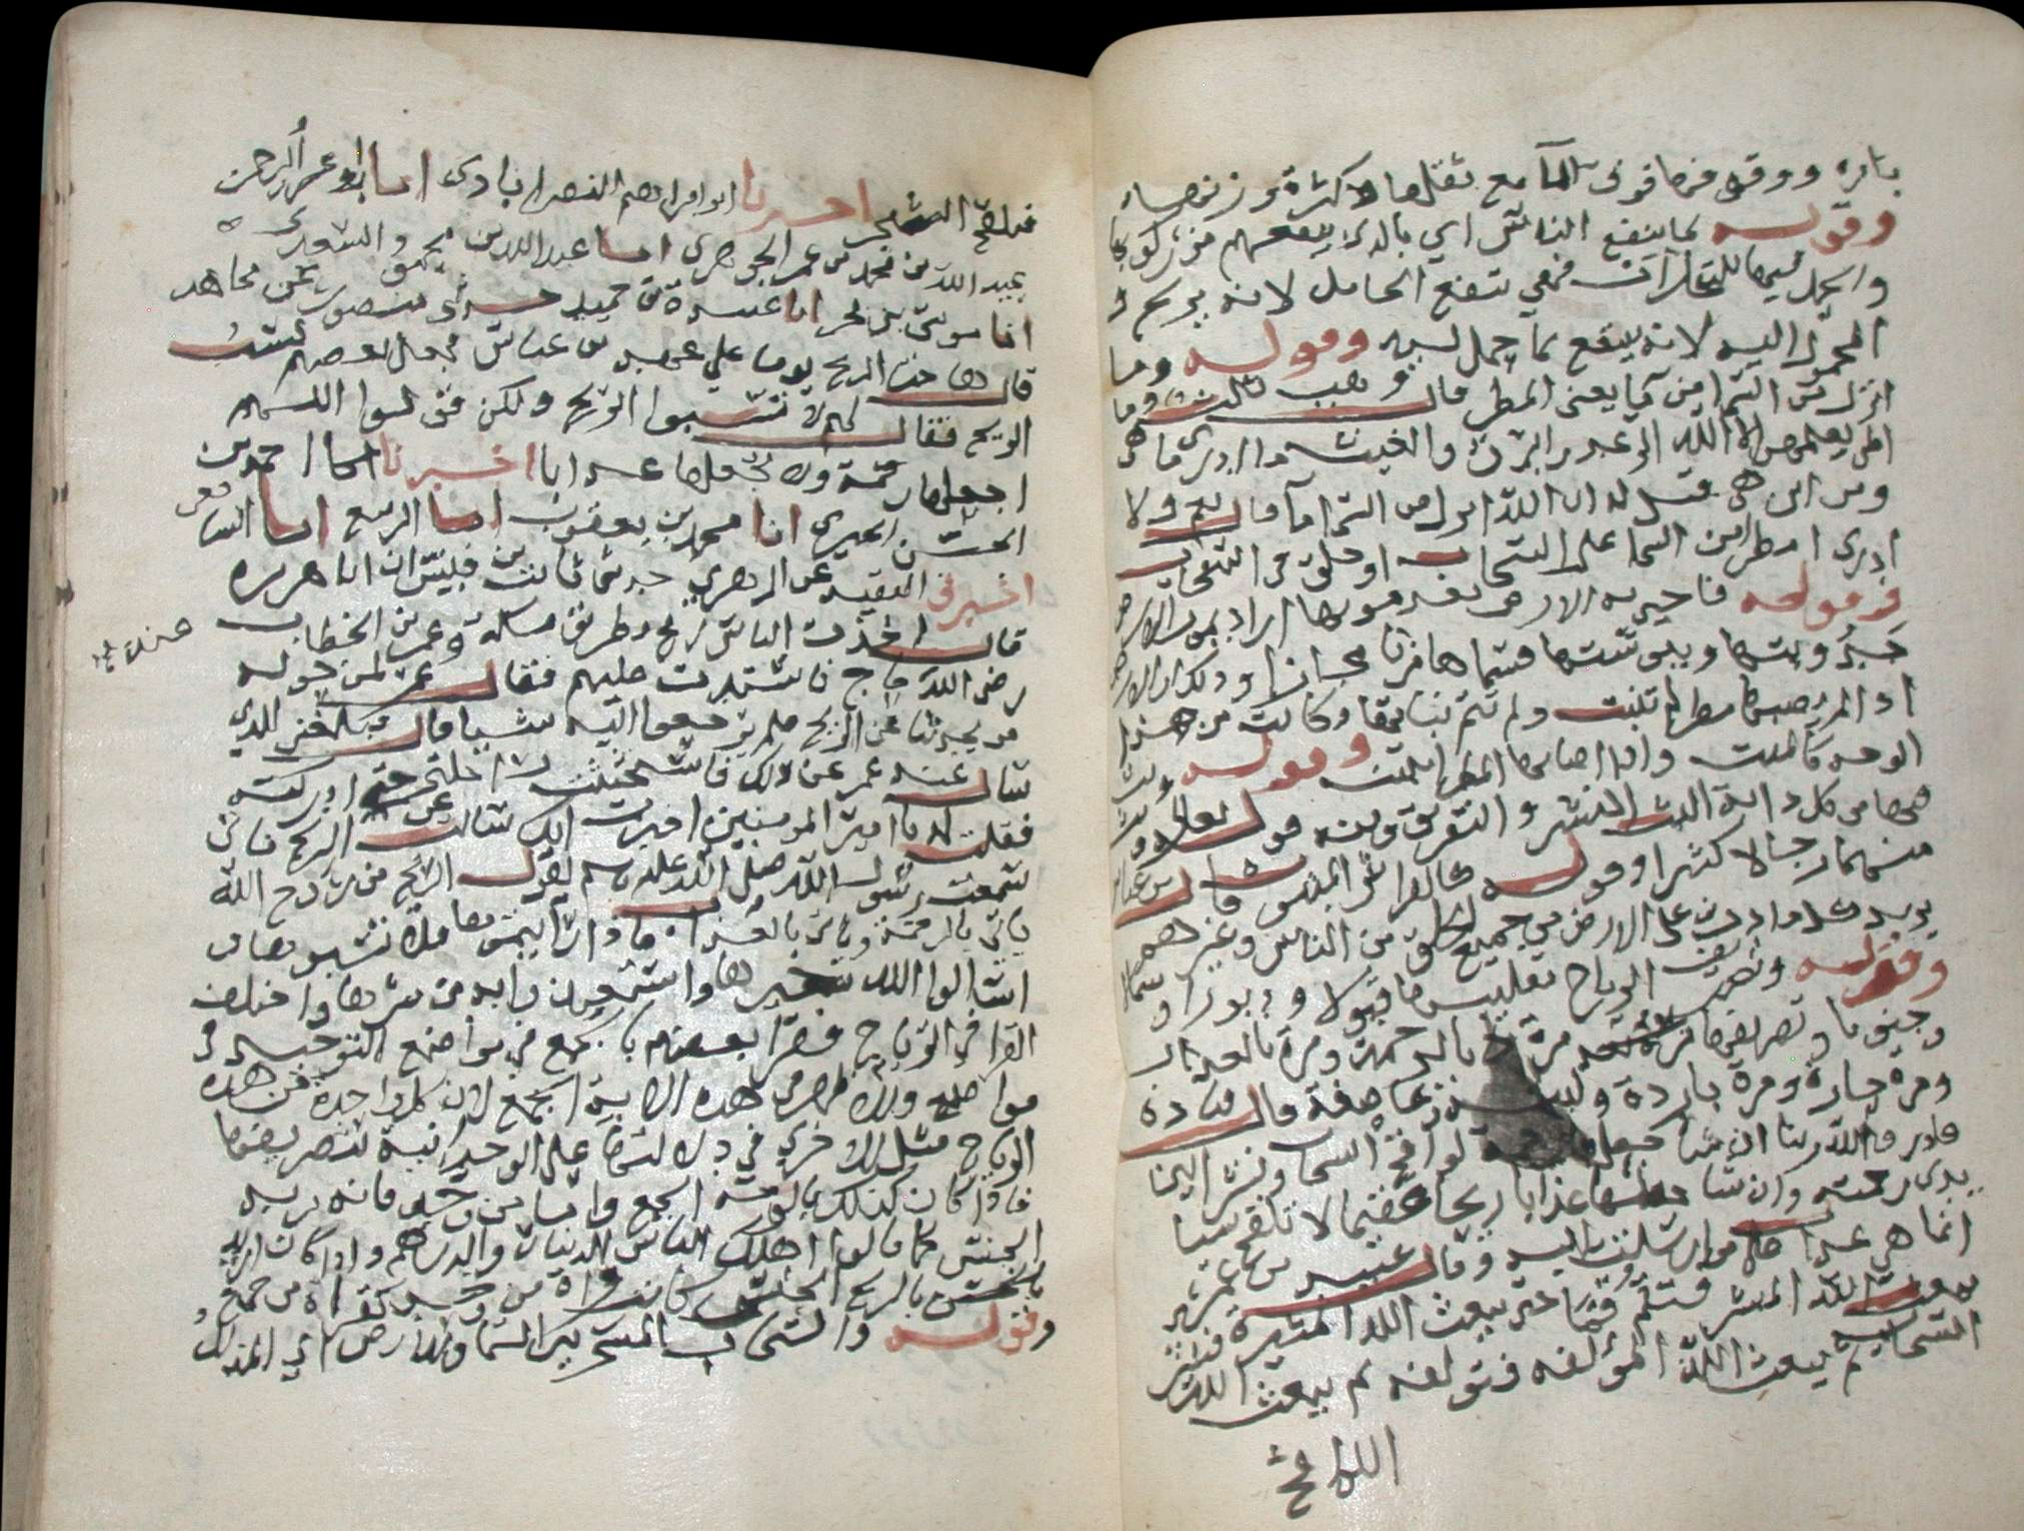 بامره ووقوفها فوق الما مع ثقلها وكثرة وزنها
وقوله بما ينفع الناس اي بالذي ينفعهم من ركوبها
والحمل فيها للتجارات فهي تنفع الحامل لانه يربح و
المحمول اليه لانه ينتفع بما حمل ليه وقوله وما
انزل الله من السما من ما يعني المطر قال وهب ثلث وما
اظن يعلمهن الا الله الرعد والبرق والغيث ما ادري ما هي
ومن اين هي فقيل له ان الله انزل من السما ما قال نعم ولا
ادري امطر من السما على السحاب او خلق في السحاب
فرموله فاحيى به الارض بعد موتها اراد بموت الارض
جدوبتها ويبوستها فسماها موتا مجازا وذلك ان الارض
اذا لم يصبها مطر لم تنبت ولم تتم نباتها وكانت من هذا
الوجه كالميت واذا اصابها المطر انبتت وقوله وبث
فيها من كل دابة البث النشر والتفريق ومنه قوله تعالى وبث
منهما رجالا كثيرا وقوله كالفراش المبثوث قال ابن عباس
يريد كلما دب على الارض من جميع الخلق من الناس وغيرهم
وقوله وتصريف الرياح تقليبها قبولا ودبورا وشمالا
وجنوبا وتصريفها مرة بالرحمة ومرة بالعذاب
ومرة حارة ومرة باردة ولينة وعاصفة قال قتادة
قادر والله ربنا ان شا جعلها رحمة لواقح السحاب ونشرا بين
يدي رحمته وان شا جعلها عذابا ريحا عقيما لا تلقح شيا
انما هي عذاب على من ارسلت اليه وقال عبيد بن عمير
يبعث الله المبشرة فتقم الارض قما ثم يبعث الله المثيرة فتثير
السحاب ثم يبعث الله المؤلفة فتؤلفه ثم يبعث الله
اللواقح
فتلقح الشجر اخبرنا ابو ابراهيم النصراباذي انا ابو عمر
عبيد الله بن محمد بن محمد الجوهري انا عبد الله بن محمود السعدي
انا موسى بن بحر انا عبيدة بن حميد حدثني منصور عن مجاهد
قال هاجت الريح يوما على عهد بن عباس فجعل بعضهم يسب
الريح فقال لهم لا تسبوا الريح ولكن قولوا اللهم
اجعلها رحمة ولا تجعلها عذابا اخبرنا احمد بن
الحسن الحيري انا محمد بن يعقوب انا الربيع انا الشافعي
اخبرني الثقة عن الزهري حدثني ثابت بن قيس ان ابا هريرة
قال اخذت الناس ريح بطريق مكة وعمر بن الخطاب
رضي الله حاج فاشتدت عليهم فقال عمر لمن حوله
من يحدثنا عن الريح فلم يرجعوا اليه شيا فبلغني الذي
سال عنه عمر عن ذلك فاستحثثت راحلتي حتى ادركته
فقلت له يا امير المومنين اخبرت انك سالت عن الريح فاني
سمعت رسول الله صلى الله عليه وسلم يقول الريح من روح الله
ياتي بالرحمة وياتي بالعذاب فاذا رايتموها فلا تسبوها و
اسالوا الله خيرها واستعيذوا به من شرها واختلف
القرا في الرياح فقرا بعضهم بالجمع في مواضع التوحيد في
مواضع والاظهر في هذه الاية الجمع لان كل واحدة من هذه
الرياح مثل الاخرى في دلالتها على الوحدانية لتصريفها
فاذا كان كذلك فالوجه الجمع واما من وحد فانه يريد به
الجنس كما قالوا اهلك الناس الدينار والدرهم واذا كان اريد
بالريح الجنس كانت قراة من وحد كقراة من جمع
وقوله والسحاب المسخر بين السما والارض اي المذلل